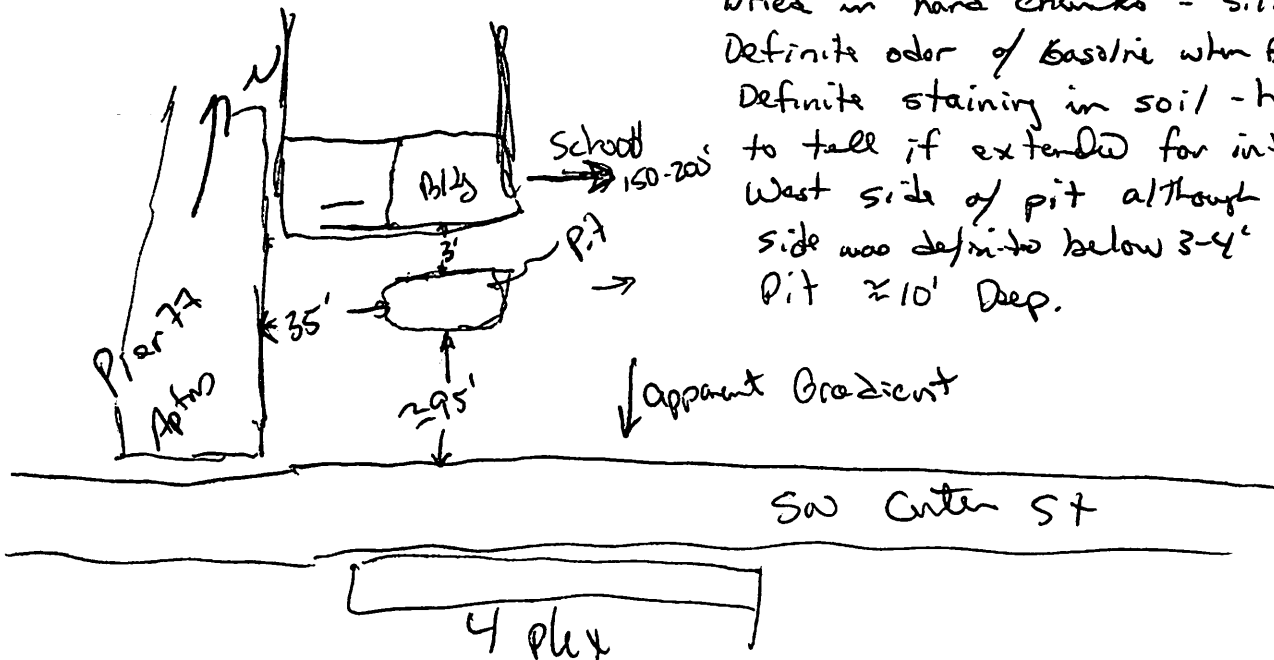 Dried in hard chunks - sil
Definite odor of Gasoline when
Definite staining in soil - h
to tell if extended for int
West side of pit although
side was definite below 3-4'
Pit ≈ 10' Deep.
N
School
150-200'
Bldg
3'
Pit
35'
Pier 77
Aptms
≈95'
apparent Gradient
SW Center St
4 plex